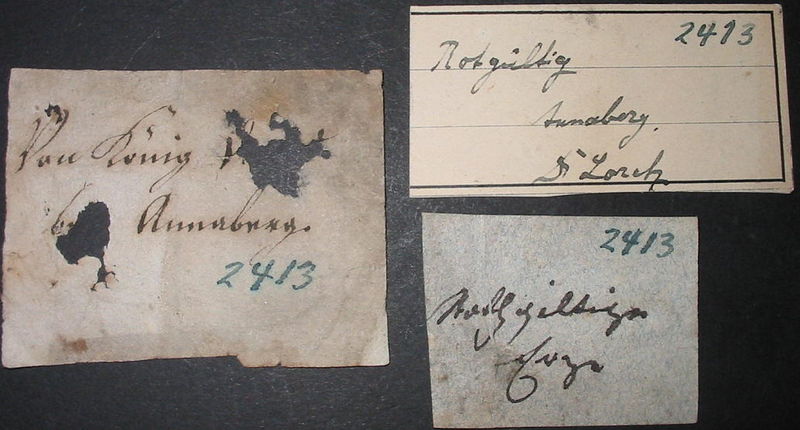 Von König
Annaberg.
2413
2413
Rotgültig
Annaberg.
Dr Lorch
2413
Rothgiltiges
Erz